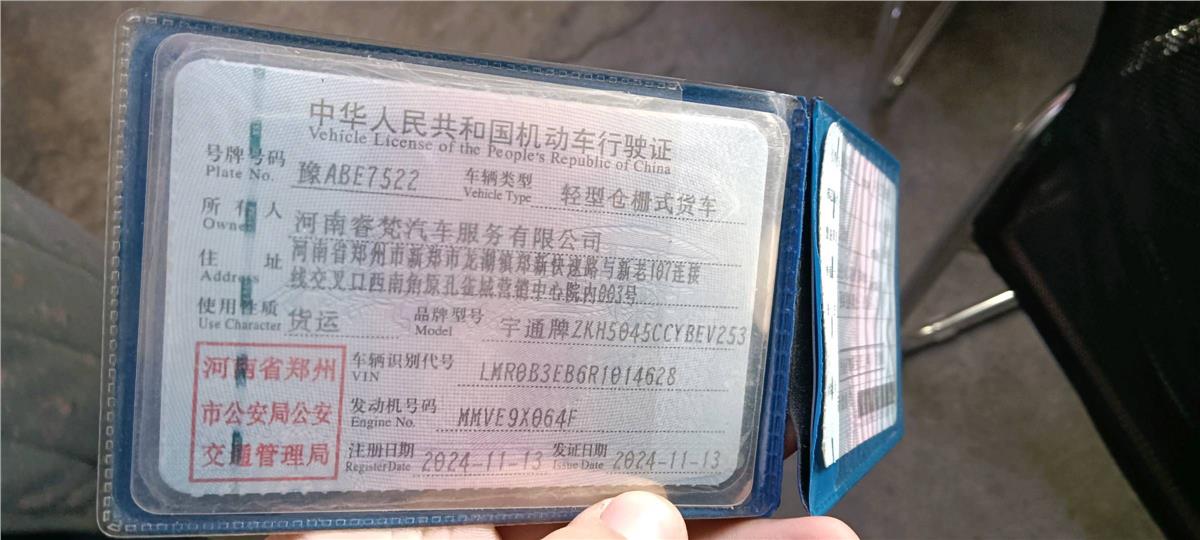 中华人民共和国机动车行驶证
Vehicle License of the People's Republic of China
号牌号码 豫ABE7522 车辆类型 轻型仓栅式货车
Plate No. Vehicle Type
所有人 河南睿梵汽车服务有限公司
Owner
住址 河南省郑州市新郑市龙湖镇郑新快速路与新老107连接
Address 线交叉口西南角原孔雀城营销中心院内003号
使用性质 货运 品牌型号 宇通牌ZKH5045CCYBEV253
Use Character Model
河南省郑州
市公安局公安
交通管理局
车辆识别代号 LMR0B3EB6R1014628
VIN
发动机号码 MMVE9X064F
Engine No.
注册日期 2024-11-13 发证日期 2024-11-13
Register Date Issue Date